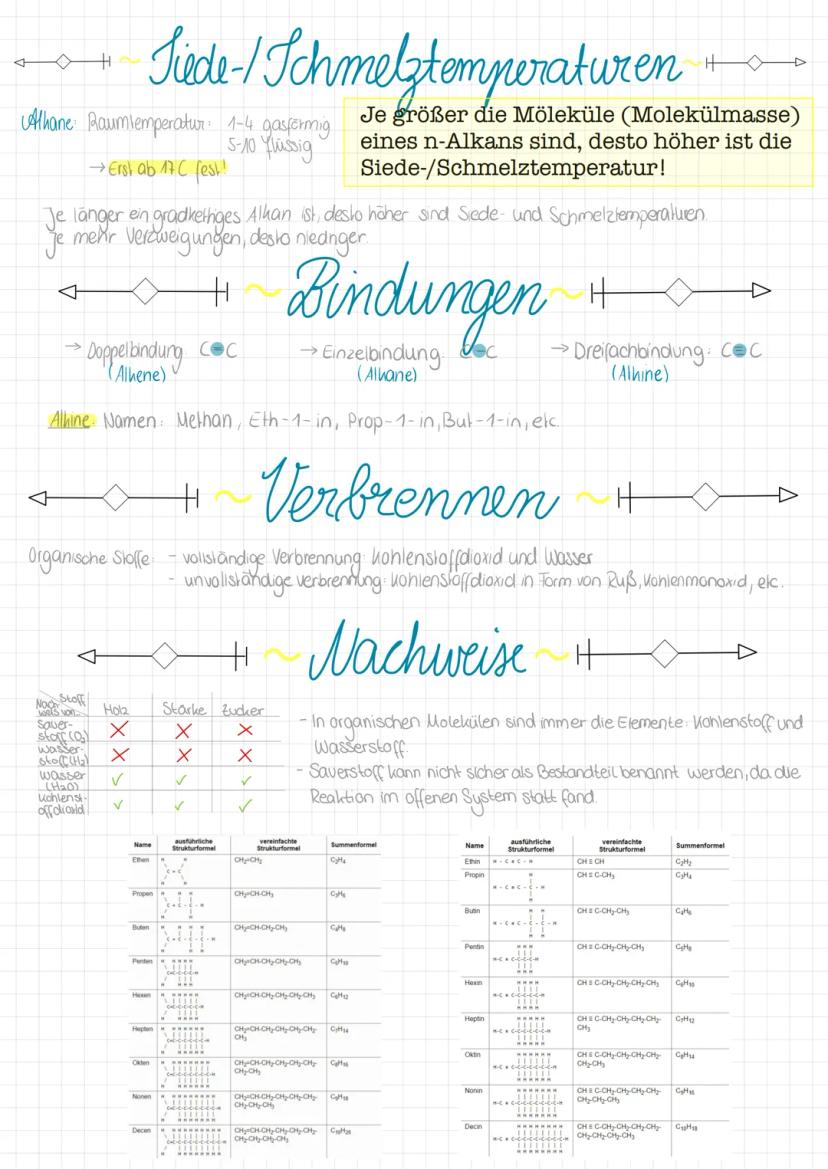 Siede-/Schmelztemperaturen
Alkane: Raumtemperatur: 1-4 gasförmig
5-10 flüssig
→ Erst ab 17C fest!
Je größer die Möleküle (Molekülmasse)
eines n-Alkans sind, desto höher ist die
Siede-/Schmelztemperatur!
Je länger ein gradkettiges Alkan ist, desto höher sind Siede- und Schmelztemperaturen.
Je mehr Verzweigungen, desto niedriger.
Bindungen
→ Doppelbindung: C=C → Einzelbindung: C-C → Dreifachbindung: C≡C
(Alkene) (Alkane) (Alkine)
Alkine: Namen: Methan, Eth-1-in, Prop-1-in, But-1-in, etc.
Verbrennen
Organische Stoffe: - vollständige Verbrennung: Kohlenstoffdioxid und Wasser
- unvollständige Verbrennung: Kohlenstoffdioxid in Form von Ruß, Kohlenmonoxid, etc.
Nachweise
Stoff
Nach-
weis von... Holz Stärke Zucker
Sauer-
stoff (O₂) X X X
Wasser-
stoff (H₂) X X X
Wasser
(H₂O) ✓ ✓ ✓
Kohlenst-
offdioxid ✓ ✓ ✓
- In organischen Molekülen sind immer die Elemente: Kohlenstoff und
Wasserstoff.
- Sauerstoff kann nicht sicher als Bestandteil benannt werden, da die
Reaktion im offenen System statt fand.
Name ausführliche Strukturformel vereinfachte Strukturformel Summenformel
Ethen CH₂=CH₂ C₂H₄
Propen CH₂=CH-CH₃ C₃H₆
Buten CH₂=CH-CH₂-CH₃ C₄H₈
Penten CH₂=CH-CH₂-CH₂-CH₃ C₅H₁₀
Hexen CH₂=CH-CH₂-CH₂-CH₂-CH₃ C₆H₁₂
Hepten CH₂=CH-CH₂-CH₂-CH₂-CH₂- C₇H₁₄
CH₃
Okten CH₂=CH-CH₂-CH₂-CH₂-CH₂- C₈H₁₆
CH₂-CH₃
Nonen CH₂=CH-CH₂-CH₂-CH₂-CH₂- C₉H₁₈
CH₂-CH₂-CH₃
Decen CH₂=CH-CH₂-CH₂-CH₂-CH₂- C₁₀H₂₀
CH₂-CH₂-CH₂-CH₃
Name ausführliche Strukturformel vereinfachte Strukturformel Summenformel
Ethin H - C ≡ C - H CH ≡ CH C₂H₂
Propin CH ≡ C-CH₃ C₃H₄
Butin CH ≡ C-CH₂-CH₃ C₄H₆
Pentin CH ≡ C-CH₂-CH₂-CH₃ C₅H₈
Hexin CH ≡ C-CH₂-CH₂-CH₂-CH₃ C₆H₁₀
Heptin CH ≡ C-CH₂-CH₂-CH₂-CH₂- C₇H₁₂
CH₃
Oktin CH ≡ C-CH₂-CH₂-CH₂-CH₂- C₈H₁₄
CH₂-CH₃
Nonin CH ≡ C-CH₂-CH₂-CH₂-CH₂- C₉H₁₆
CH₂-CH₂-CH₃
Decin CH ≡ C-CH₂-CH₂-CH₂-CH₂- C₁₀H₁₈
CH₂-CH₂-CH₂-CH₃